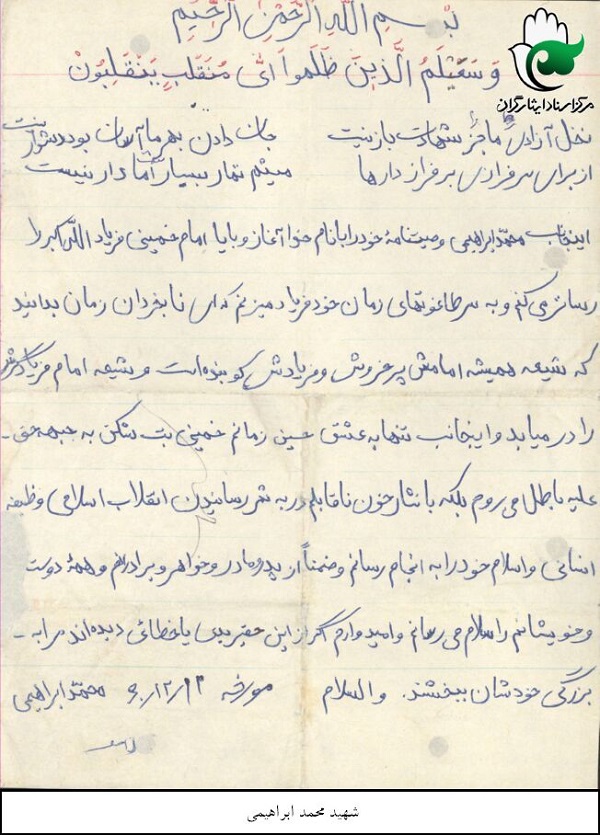 بسم الله الرحمن الرحیم
وَسَیَعْلَمُ الَّذینَ ظَلَمواْ اَیَّ مُنقَلَبٍ یَنقَلِبُونْ
مرکز اسناد ایثارگران
نخل آزادی ما جز شهادت بار نیست جان دادن بهر ما آسان بود دشوار نیست
از برای سرفرازی بر فراز دارها میثم تمار بسیار است اما دار نیست
اینجانب محمد ابراهیمی وصیتنامهٔ خود را با نام خدا آغاز و با یا امام خمینی فریاد الله اکبر را
رساتر می کنم و به سر طاغوتهای زمان خود فریاد میزنم که ای نابخردان زمان بدانید
که شیعه همیشه امامش پرخروش و فریادش کوبنده است و شیعه امام فریادگرش
را در میابد و اینجانب تنها به عشق حسین زمانم خمینی بت شکن به جبهه حق -
علیه باطل می روم بلکه با نثار خون ناقابلم در به ثمر رسانیدن انقلاب اسلامی وظیفه
انسانی و اسلام خود را به انجام رسانم و ضمناً از پدر و مادر و خواهر و برادرانم و همهٔ دوست
و خویشانم را سلام می رسانم و امیدوارم اگر از این حقیر بدی یا خطائی دیده اند مرا به -
بزرگی خودشان ببخشند. والسلام مورخه ۶۰/۱۲/۱۳ محمد ابراهیمی
شهید محمد ابراهیمی